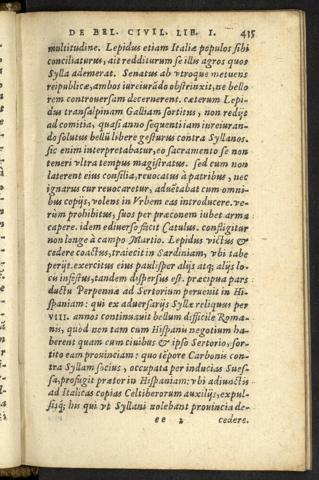 DE BEL. CIVIL. LIB. I. 435
multitudine. Lepidus etiam Italiæ populos sibi
conciliaturus, ait redditurum se illis agros quos
Sylla ademerat. Senatus ab vtroque metuens
reipublicæ, ambos iureiurãdo obstrinxit, ne bello
rem controuersam decernerent. cæterum Lepi-
dus transalpinam Galliam sortitus, non redijt
ad comitia, quasi anno sequenti iam iureiuran-
do solutus bellũ libere gesturus contra Syllanos.
sic enim interpretabatur, eo sacramento se non
teneri vltra tempus magistratus. sed cum non
laterent eius consilia, reuocatus à patribus, nec
ignarus cur reuocaretur, aduẽtabat cum omni-
bus copijs, volens in Vrbem eas introducere. ve-
rùm prohibitus, suos per præconem iubet arma
capere. idem ediuerso fecit Catulus. confligitur
non longe à campo Martio. Lepidus victus &
cedere coactus, traiecit in Sardiniam, vbi tabe
perijt. exercitus eius paulisper alijs atq; alijs lo-
cis infestus, tandem dispersus est. præcipua pars
ductu Perpennæ ad Sertorium peruenit in Hi-
spaniam: qui ex aduersarijs Syllæ reliquus per
VIII. annos continuauit bellum difficile Roma-
nis, quòd non tam cum Hispanis negotium ha-
berent quam cum ciuibus & ipso Sertorio, sor-
tito eam prouinciam: quo tẽpore Carbonis con-
tra Syllam socius, occupata per inducias Sues-
sa, profugit prætor in Hispaniam: vbi adiunctis
ad Italicas copias Celtiberorum auxilijs, expul-
sisq; his qui vt Syllani nolebant prouincia de-
ee 2 cedere.